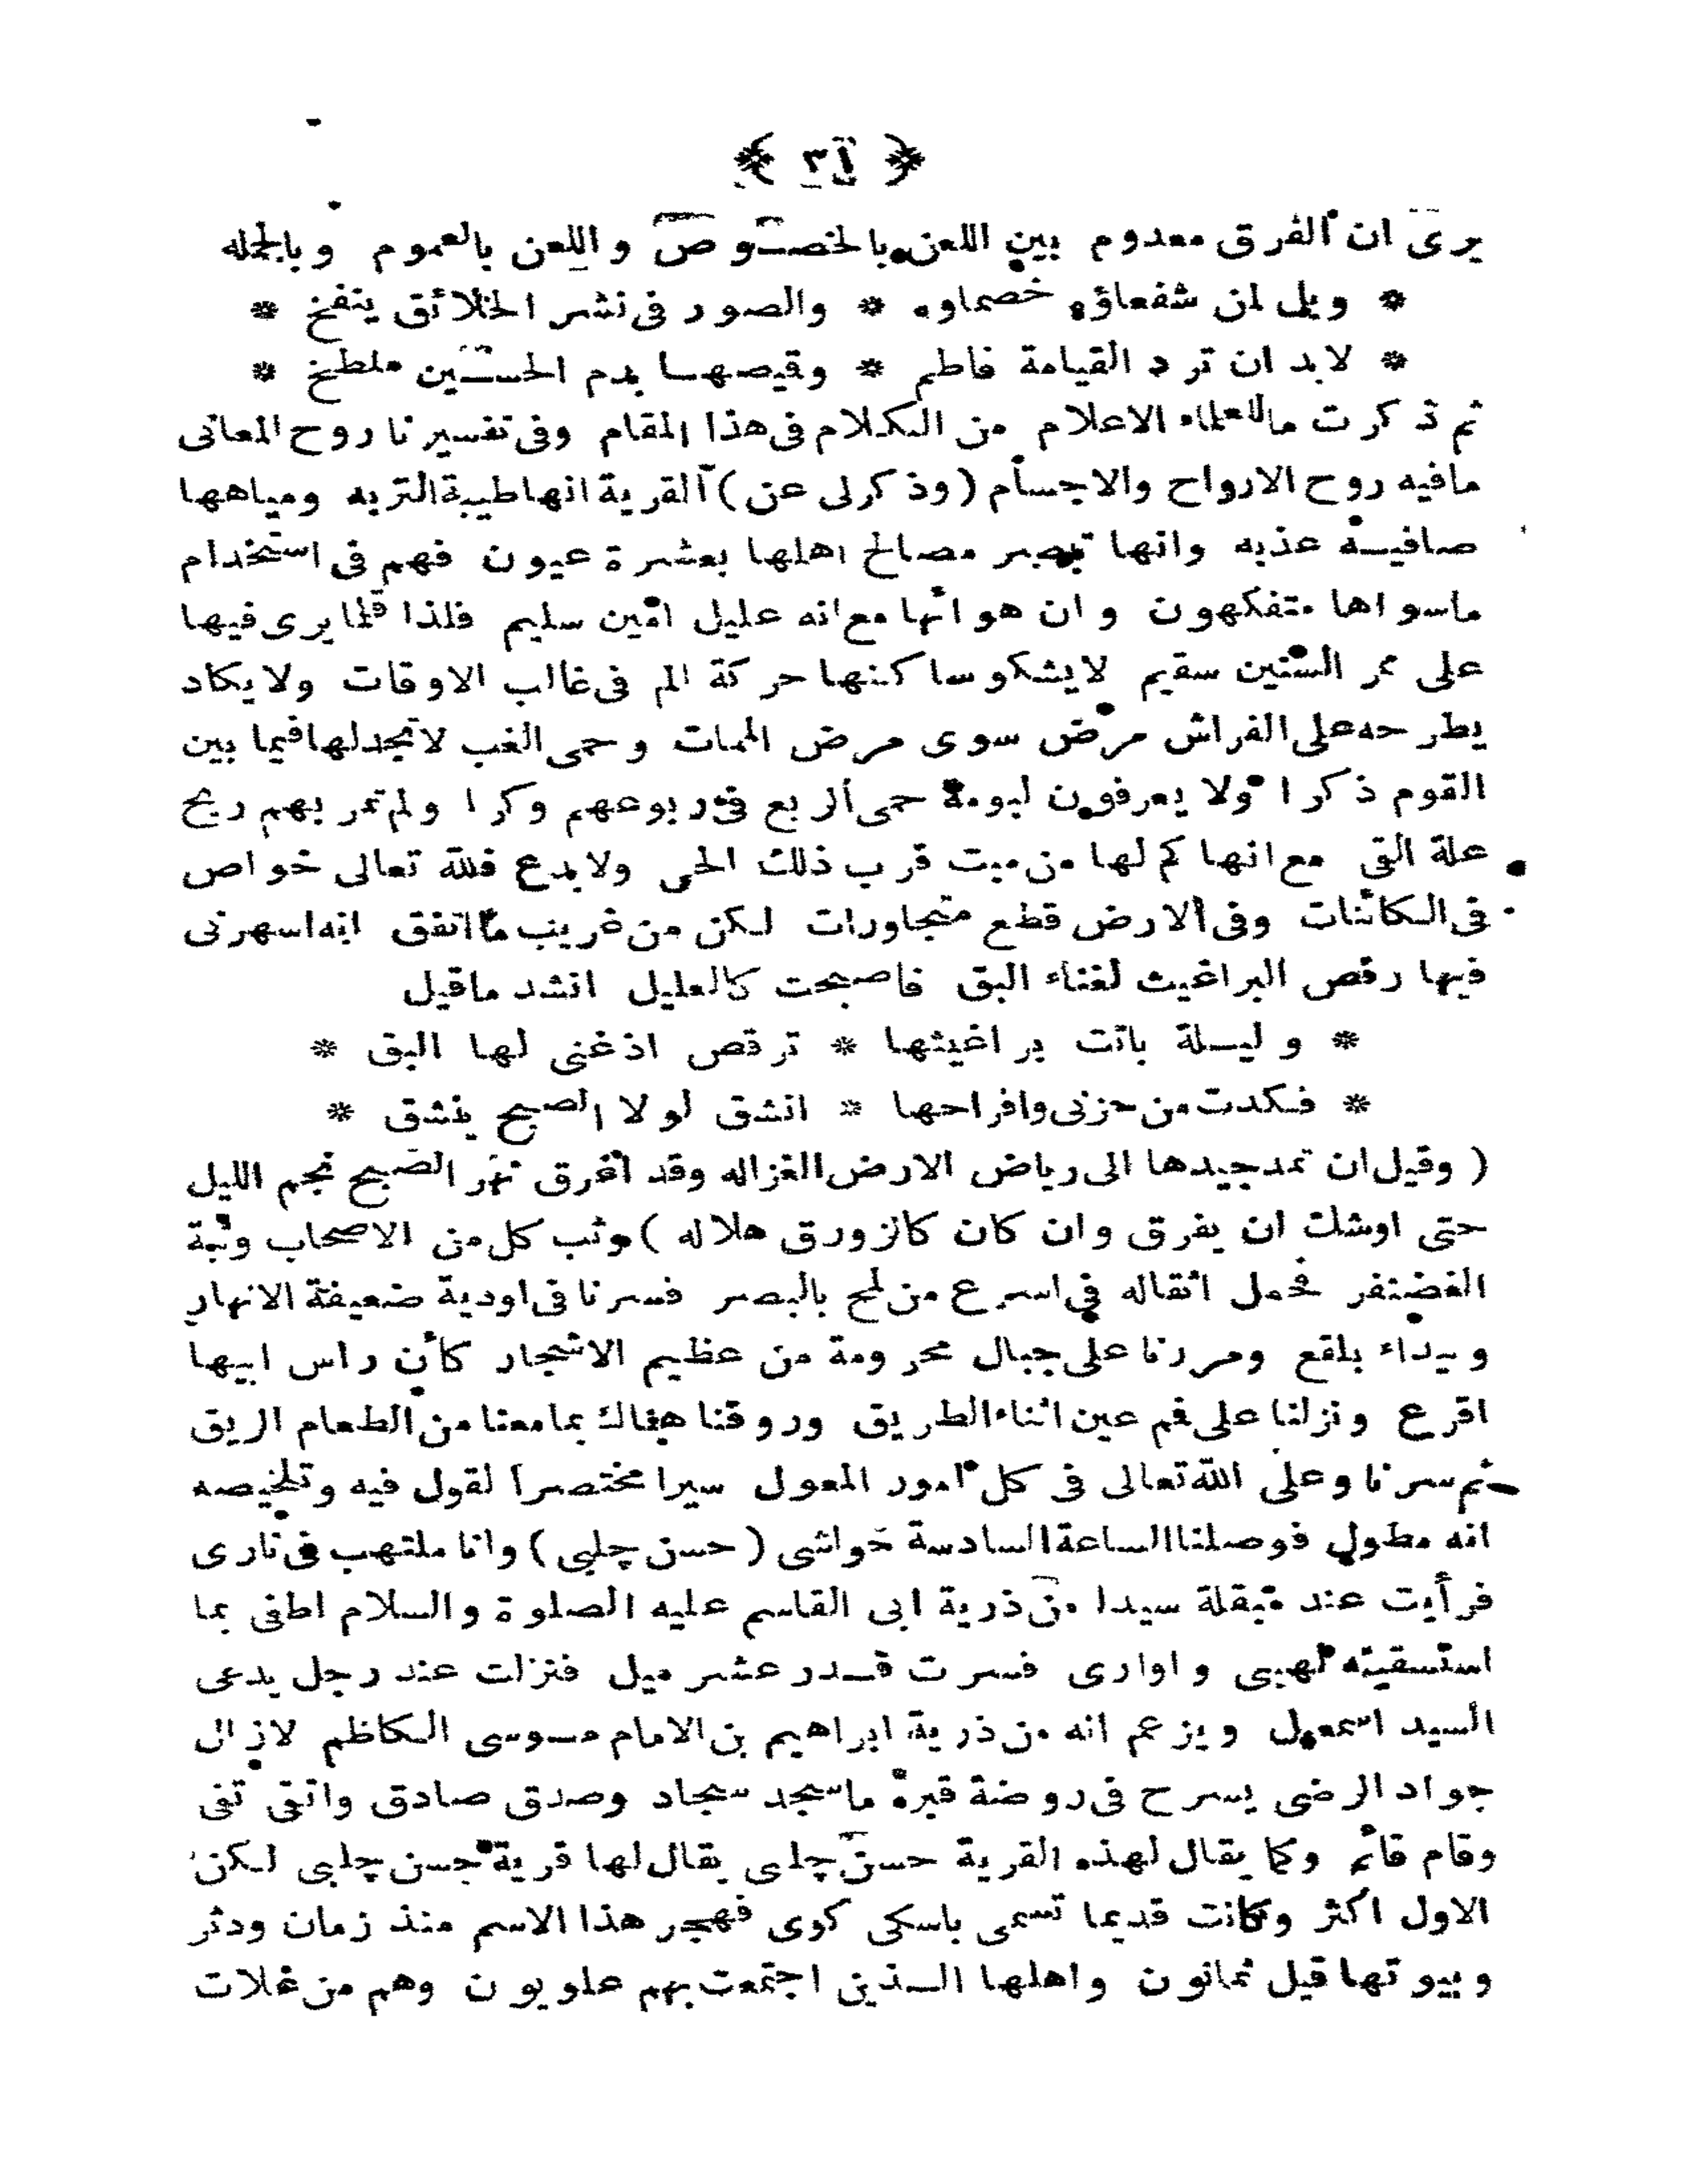 ﴿ ٣١ ﴾
يرى ان الفرق معدوم بين اللعن بالخصوص واللعن بالعموم وبالجمله
* ويل لمن شفعاؤه خصماوه * والصور فى نشر الخلائق ينفخ *
* لابد ان ترد القيامة فاطم * وقيصها بدم الحسين ملطخ *
ثم ذكرت ما للعلماء الاعلام من الكلام فى هذا المقام وفى تفسيرنا روح المعانى
مافيه روح الارواح والاجسام (وذكر لى عن) القرية انها طيبة التربه ومياهها
صافية عذبه وانها تبصر مصالح اهلها بعشرة عيون فهم فى استخدام
ماسواها متفكهون وان هوائها مع انه عليل امين سليم فلذا قلما يرى فيها
على ممر السنين سقيم لايشكو ساكنها حركة الم فى غالب الاوقات ولايكاد
يطرحه على الفراش مرض سوى مرض الممات وحمى الغب لاتجد لها فيما بين
القوم ذكرا ولا يعرفون لبومة حمى الربع فى ربوعهم وكرا ولم تمر بهم ريح
علة التى مع انها كم لها من ميت قرب ذلك الحى ولا بدع فلله تعالى خواص
فى الكائنات وفى الارض قطع متجاورات لكن من غريب ما اتفق انه اسهرنى
فيها رقص البراغيث لغناء البق فاصبحت كالعليل انشد ماقيل
* وليلة باتت براغيثها * ترقص اذ غنى لها البق *
* فكدت من حزنى وافراحها * انشق لولا الصبح ينشق *
( وقيل ان تمد جيدها الى رياض الارض الغزاله وقد اغرق نهر الصبح نجم الليل
حتى اوشك ان يغرق وان كان كالزورق هلاله ) وثب كل من الاصحاب وثبة
الغضنفر فحمل اثقاله فى اسرع من لمح بالبصر فسرنا فى اودية ضعيفة الانهار
وبيداء بلقع ومررنا على جبال محرومة من عظيم الاشجار كأن راس ابيها
اقرع ونزلنا على فم عين اثناء الطريق وروقنا هناك بما معنا من الطعام الريق
ثم سرنا وعلى الله تعالى فى كل امور المعول سيرا مختصرا لقول فيه وتلخيصه
انه مطول فوصلنا الساعة السادسة حواشى ( حسن چلبى ) وانا ملتهب فى نارى
فرأيت عند مبقلة سيدا من ذرية ابى القاسم عليه الصلوة والسلام اطفى بما
استسقيته لهيبى واوارى فسرت قدر عشر ميل فنزلت عند رجل يدعى
السيد اسمعيل ويزعم انه من ذرية ابراهيم بن الامام موسى الكاظم لازال
جواد الرضى يسرح فى روضة قبره ماسجد سجاد وصدق صادق واتقى تقى
وقام قائم وكما يقال لهذه القرية حسن چلبى يقال لها قرية حسن چلبى لكن
الاول اكثر وكانت قديما تسمى باسكى كوى فهجر هذا الاسم منذ زمان ودثر
وبيوتها قيل ثمانون واهلها الذين اجتمعت بهم علويون وهم من غلات